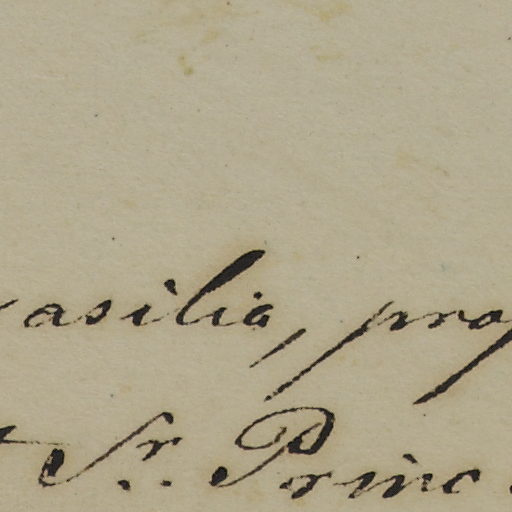 asilia, prop
Sr. Princ.